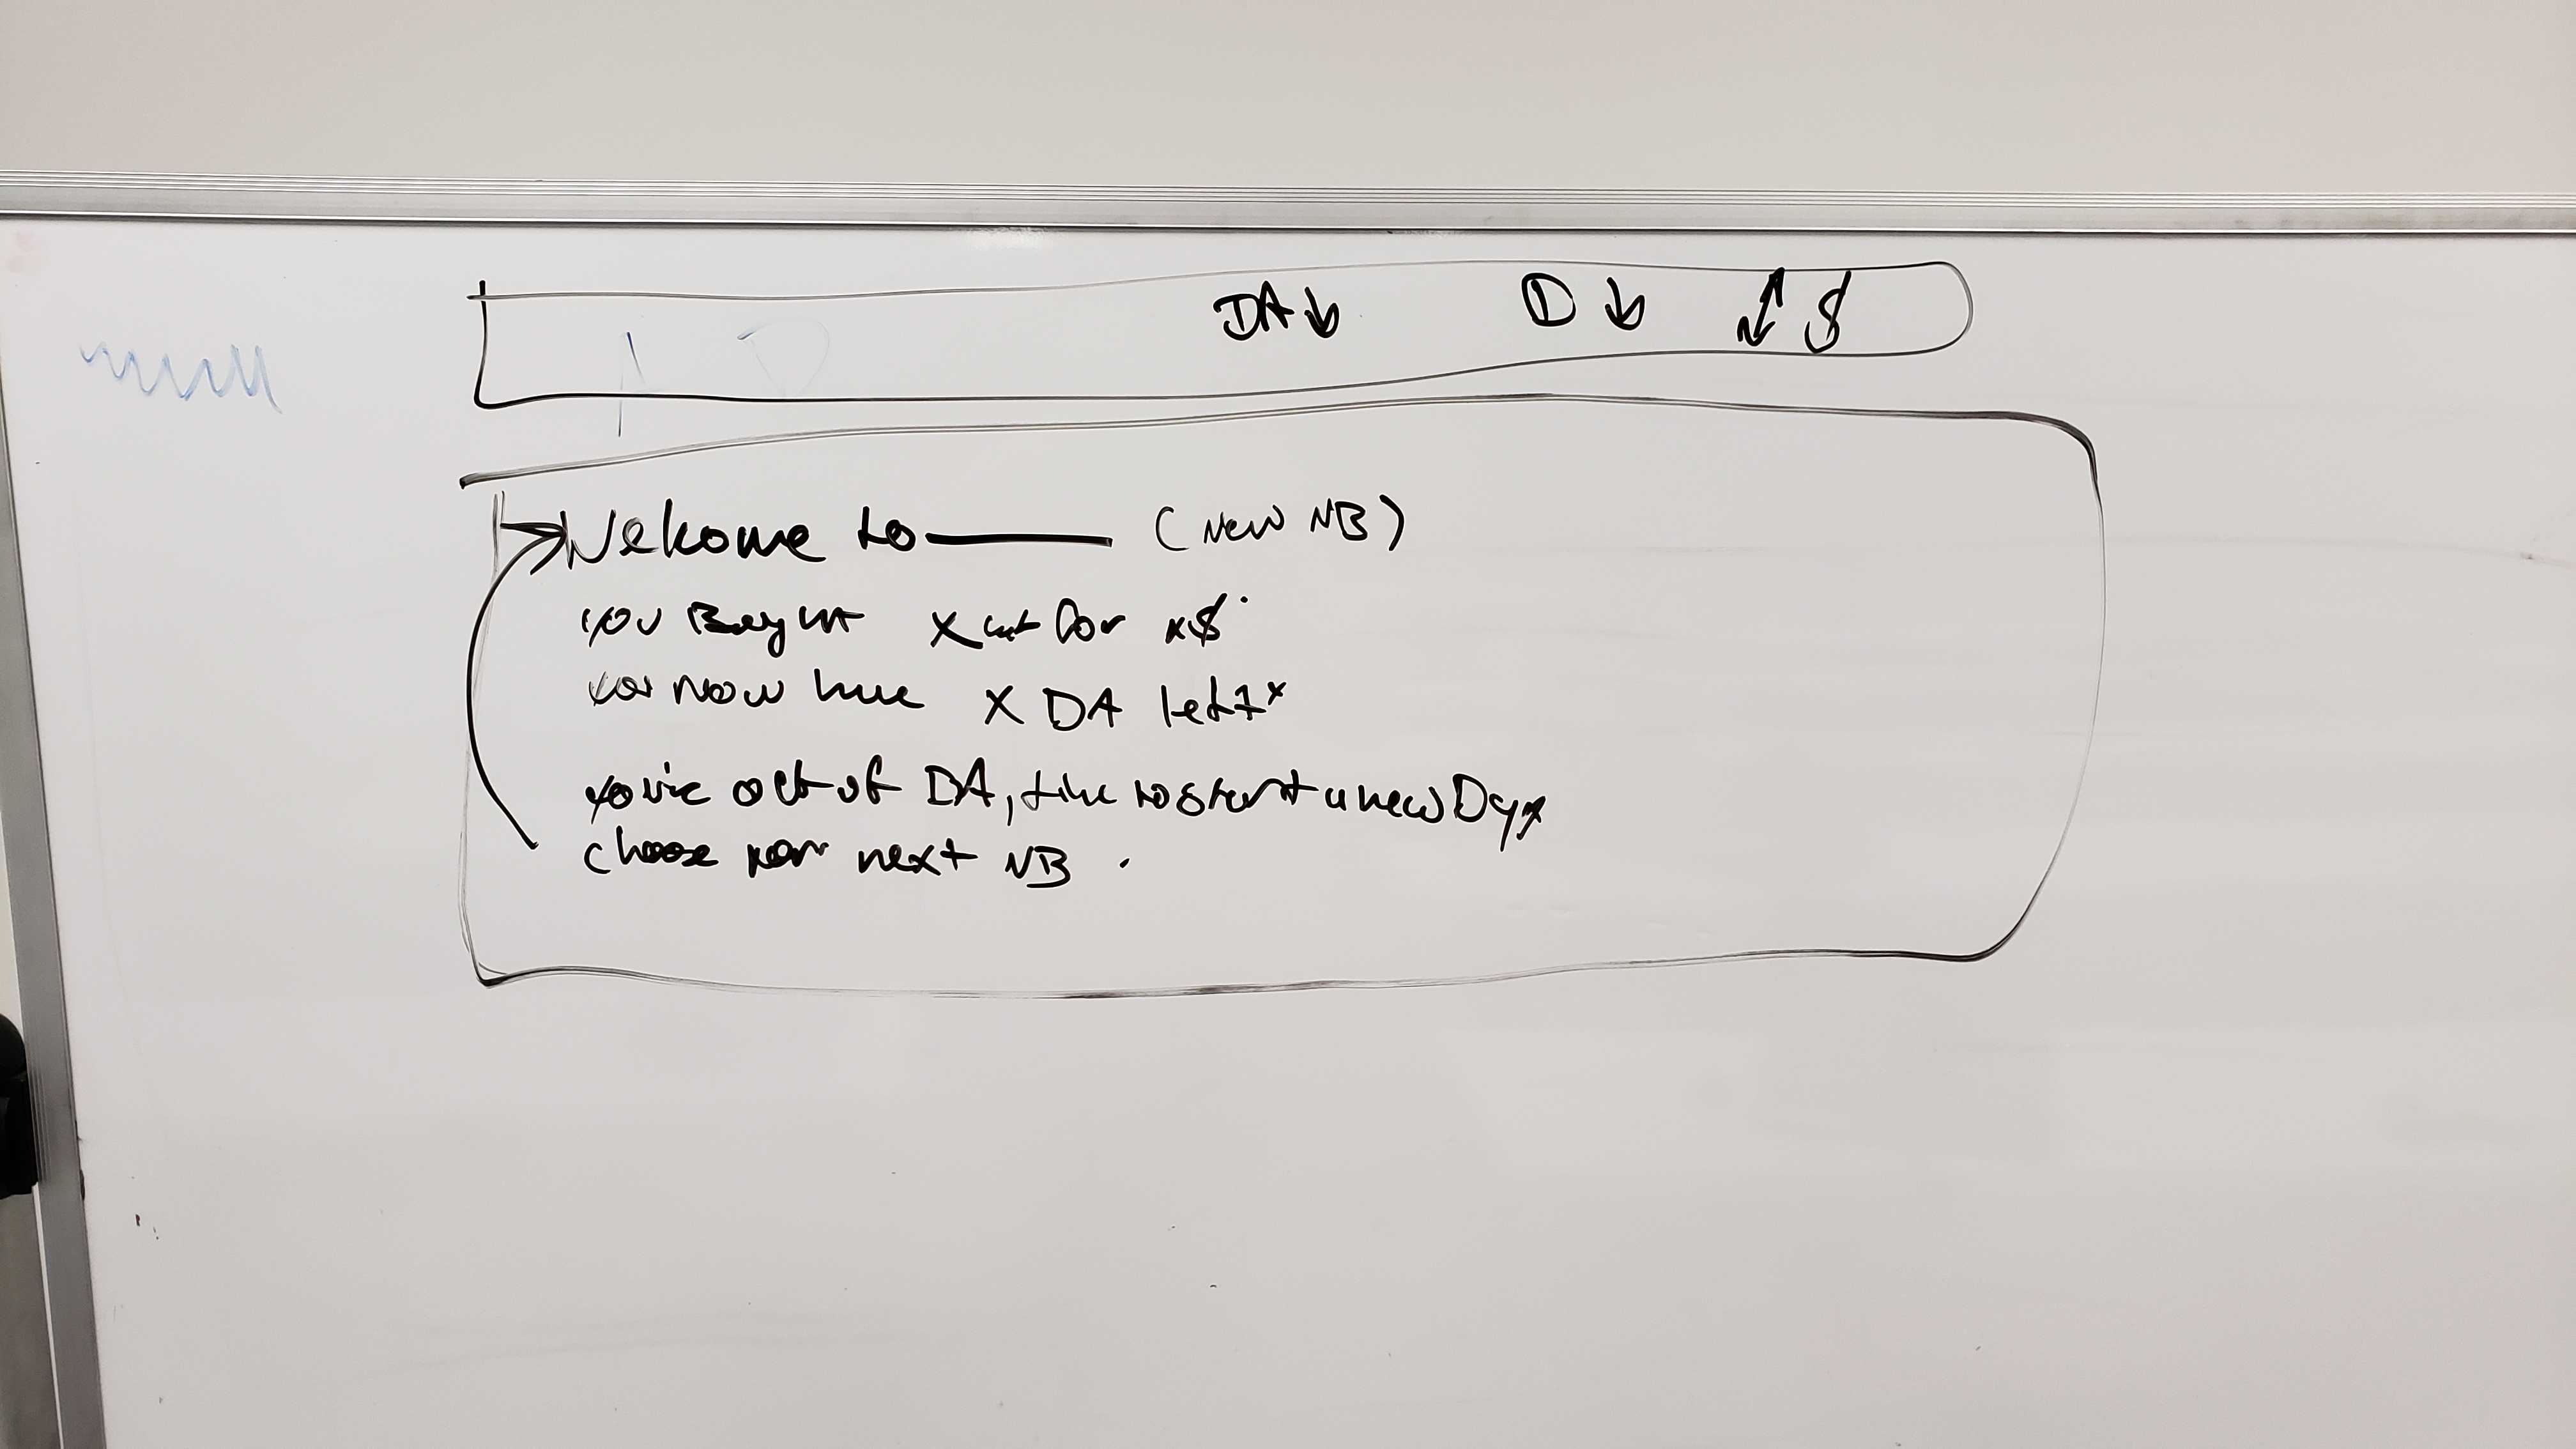 DA↓ D ↓ ↕ $
Welcome to ——— (New NB)
You Bought X for x$
You now have X DA left
You're out of DA, time to start a new Day
choose your next NB .